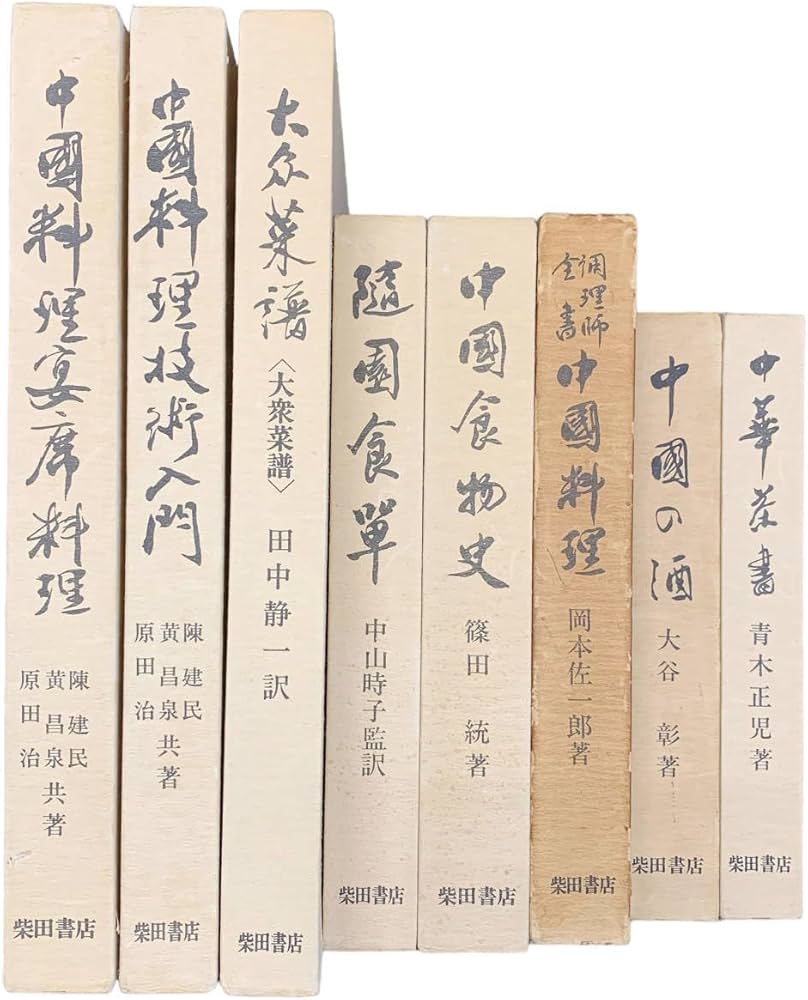 中國料理宴席料理
陳建民
黄昌泉
原田治
共著
柴田書店
中國料理技術入門
陳建民
黄昌泉
原田治
共著
柴田書店
大众菜譜
〈大衆菜譜〉
田中静一訳
柴田書店
隨園食單
中山時子監訳
柴田書店
中國食物史
篠田統著
柴田書店
調理師
全書
中國料理
岡本佐一郎著
柴田書店
中國の酒
大谷彰著
柴田書店
中華茶書
青木正児著
柴田書店